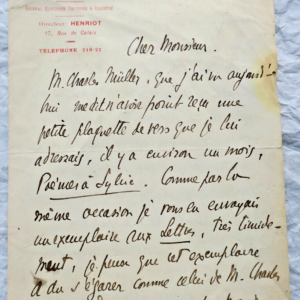 Directeur: HENRIOT
17, Rue de Calais
TÉLÉPHONE
Cher Monsieur.
M. Charles Müller, que j'ai vu aujourd'
hui me dit n'avoir point reçu une
petite plaquette de vers que je lui
adressais, il y a environ un mois,
à Sylvie. Comme par la
même occasion je vous en envoyais
un exemplaire aux Lettres, très timide-
ment, je pense que cet exemplaire
a du s'égarer comme celui de M. Charles